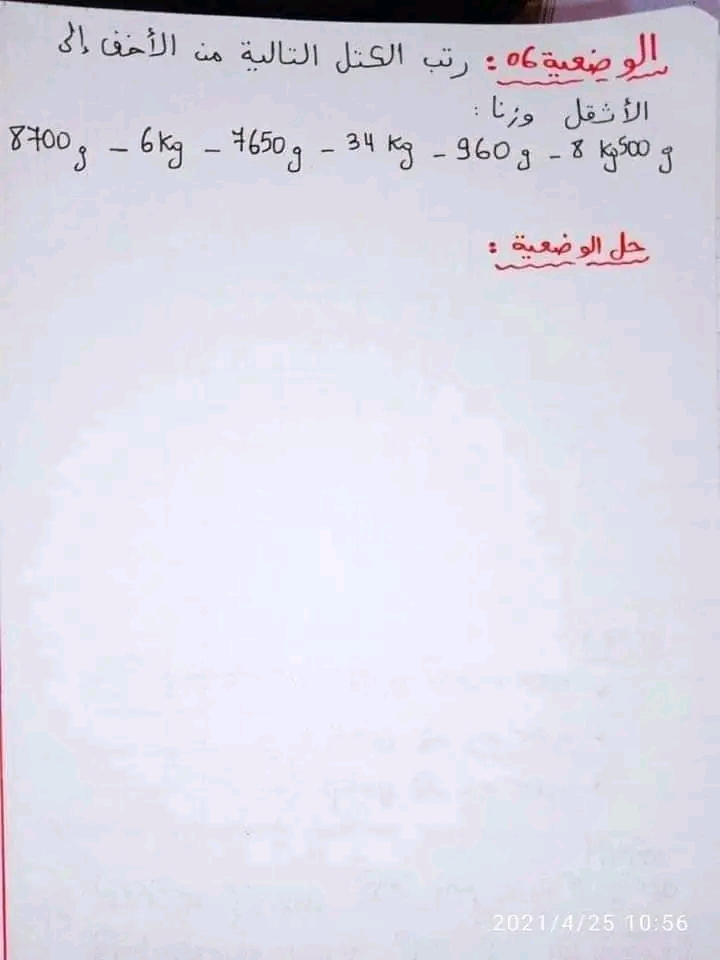 الوضعية 06: رتب الكتل التالية من الأخف إلى
الأثقل وزنا :
8700g – 6kg – 7650g – 34 kg – 960 g – 8 kg500 g
حل الوضعية :
2021/4/25 10:56